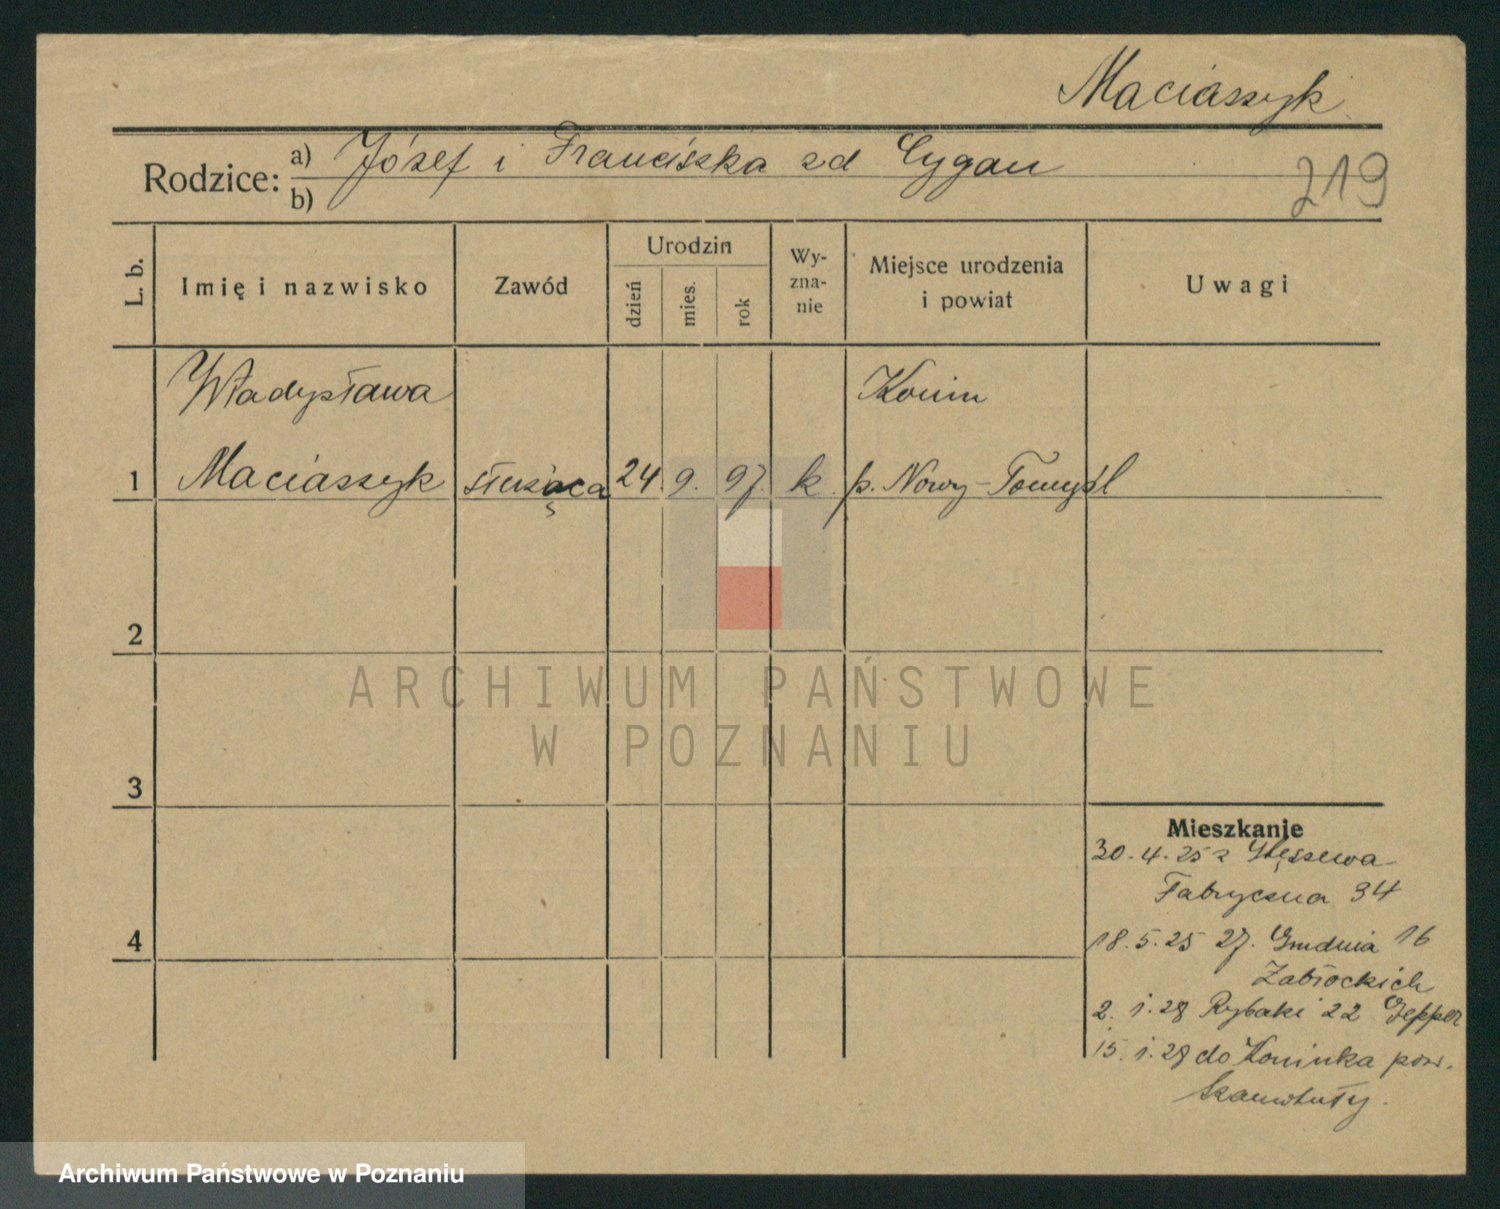 Maciaszyk
Rodzice: a) Józef i Franciszka zd Cygan
b)
219
L. b.
Imię i nazwisko
Zawód
Urodzin
dzień
mies.
rok
Wy-
zna-
nie
Miejsce urodzenia
i powiat
Uwagi
Władysława
Konin
1 Maciaszyk służąca 24. 9. 97. k. p. Nowy-Tomyśl
2
3
4
ARCHIWUM PAŃSTWOWE
W POZNANIU
Mieszkanie
30.4.25 z Stęszewa
Fabryczna 34
18.5.25 27. Grudnia 16
Zabłockich
2. 1. 28 Rybaki 22 Jepper
15. 1. 28 do Koninka pow.
Szamotuły.
Archiwum Państwowe w Poznaniu